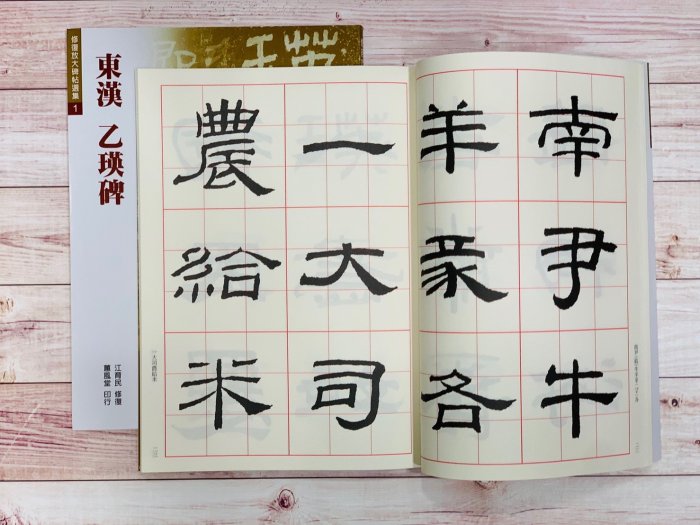 修復放大碑帖選集 1
東漢 乙瑛碑
江育民 修復
蕙風堂 印行
南尹牛
羊豕各
一大司
農給米
一大司農給米